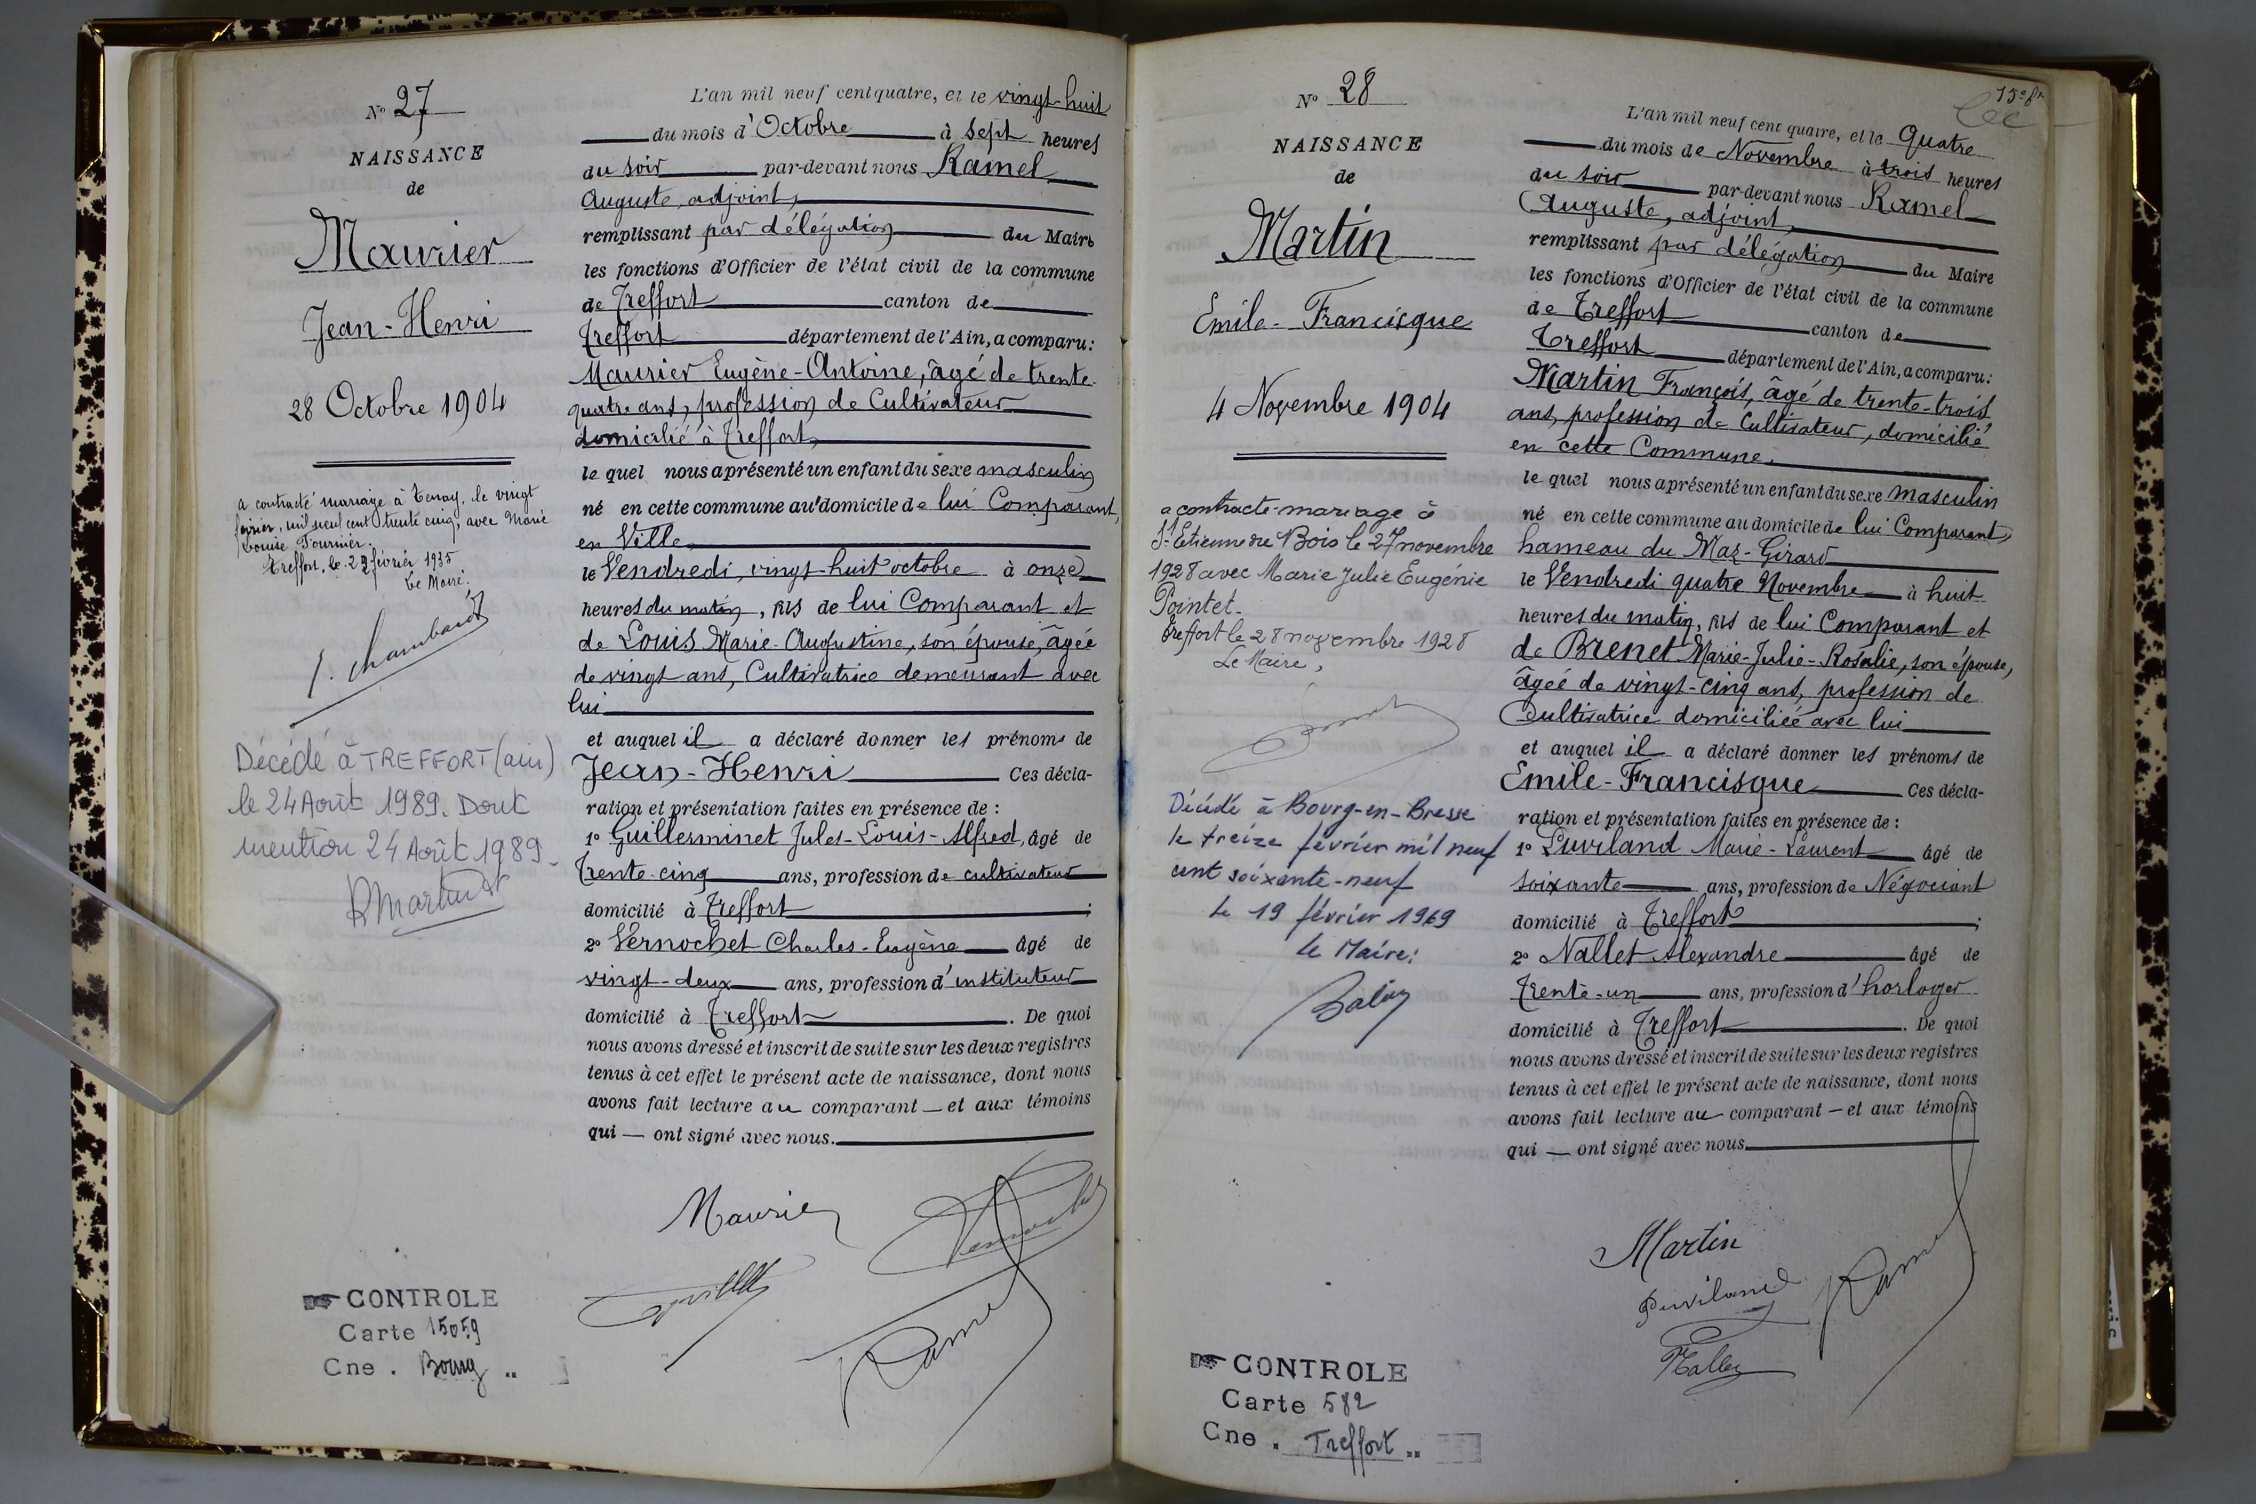 N° 27
NAISSANCE
de
Maurier
Jean-Henri
28 Octobre 1904
a contracté mariage à Tenay, le vingt
février, mil neuf cent trente cinq, avec Marie
Louise Fournier.
Treffort, le 22 février 1935
Le Maire.
Décédé à TREFFORT (ain)
le 24 Août 1989. Dont
mention 24 Août 1989
CONTROLE
Carte 15059
Cne . Bourg ..
L'an mil neuf cent quatre, et le vingt-huit
du mois d'Octobre à sept heures
du soir par-devant nous Ramel
Auguste, adjoint,
remplissant par délégation du Maire
les fonctions d'Officier de l'état civil de la commune
de Treffort canton de
Treffort département de l'Ain, a comparu:
Maurier Eugène-Antoine, âgé de trente-
quatre ans, profession de Cultivateur
domicilié à Treffort,
le quel nous a présenté un enfant du sexe masculin
né en cette commune au domicile de lui Comparant,
en Ville,
le Vendredi, vingt-huit octobre à onze
heures du matin, fils de lui Comparant et
de Louis Marie-Augustine, son épouse, âgée
de vingt ans, Cultivatrice demeurant avec
lui
et auquel il a déclaré donner les prénoms de
Jean-Henri Ces décla-
ration et présentation faites en présence de :
1° Guillerminet Jules-Louis-Alfred, âgé de
Trente-cinq ans, profession de cultivateur
domicilié à Treffort ;
2° Vernochet Charles-Eugène âgé de
vingt-deux ans, profession d'instituteur
domicilié à Treffort . De quoi
nous avons dressé et inscrit de suite sur les deux registres
tenus à cet effet le présent acte de naissance, dont nous
avons fait lecture au comparant — et aux témoins
qui — ont signé avec nous.
Maurier
Ramel
N° 28
NAISSANCE
de
Martin
Emile-Francisque
4 Novembre 1904
a contracté mariage à
St-Etienne du Bois le 27 novembre
1928 avec Marie Julie Eugénie
Pointet.
Treffort le 28 novembre 1928
Le Maire,
Décédé à Bourg-en-Bresse
le treize février mil neuf
cent soixante-neuf
le 19 février 1969
Le Maire:
CONTROLE
Carte 582
Cne . Treffort ..
L'an mil neuf cent quatre, et le Quatre
du mois de Novembre à trois heures
du soir par-devant nous Ramel
Auguste, adjoint,
remplissant par délégation du Maire
les fonctions d'Officier de l'état civil de la commune
de Treffort canton de
Treffort département de l'Ain, a comparu:
Martin François, âgé de trente-trois
ans, profession de Cultivateur, domicilié
en cette Commune,
le quel nous a présenté un enfant du sexe masculin
né en cette commune au domicile de lui Comparant,
hameau du Maz-Girard
le Vendredi quatre Novembre à huit
heures du matin, fils de lui Comparant et
de Brenet Marie-Julie-Rosalie, son épouse,
âgée de vingt-cinq ans, profession de
Cultivatrice domiciliée avec lui
et auquel il a déclaré donner les prénoms de
Emile-Francisque Ces décla-
ration et présentation faites en présence de :
1° Puvilland Marie-Laurent âgé de
soixante ans, profession de Négociant
domicilié à Treffort ;
2° Nallet Alexandre âgé de
Trente-un ans, profession d'horloger
domicilié à Treffort . De quoi
nous avons dressé et inscrit de suite sur les deux registres
tenus à cet effet le présent acte de naissance, dont nous
avons fait lecture au comparant — et aux témoins
qui — ont signé avec nous
Martin
Puviland
Ramel